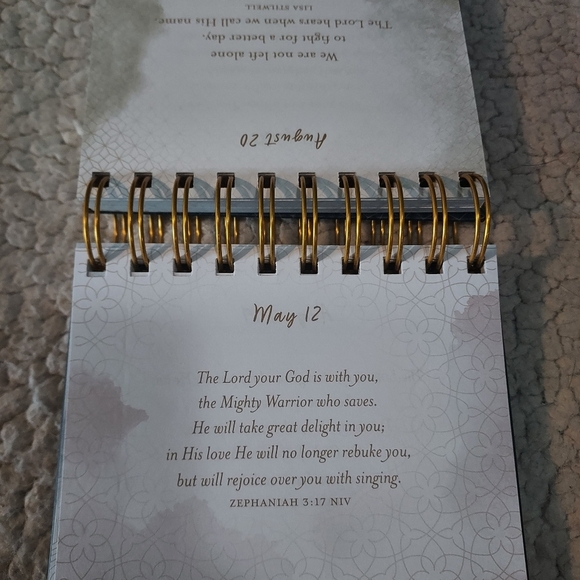 We are not left alone
to fight for a better day.
The Lord hears when we call His name.
LISA STILWELL
August 20
May 12
The Lord your God is with you,
the Mighty Warrior who saves.
He will take great delight in you;
in His love He will no longer rebuke you,
but will rejoice over you with singing.
ZEPHANIAH 3:17 NIV